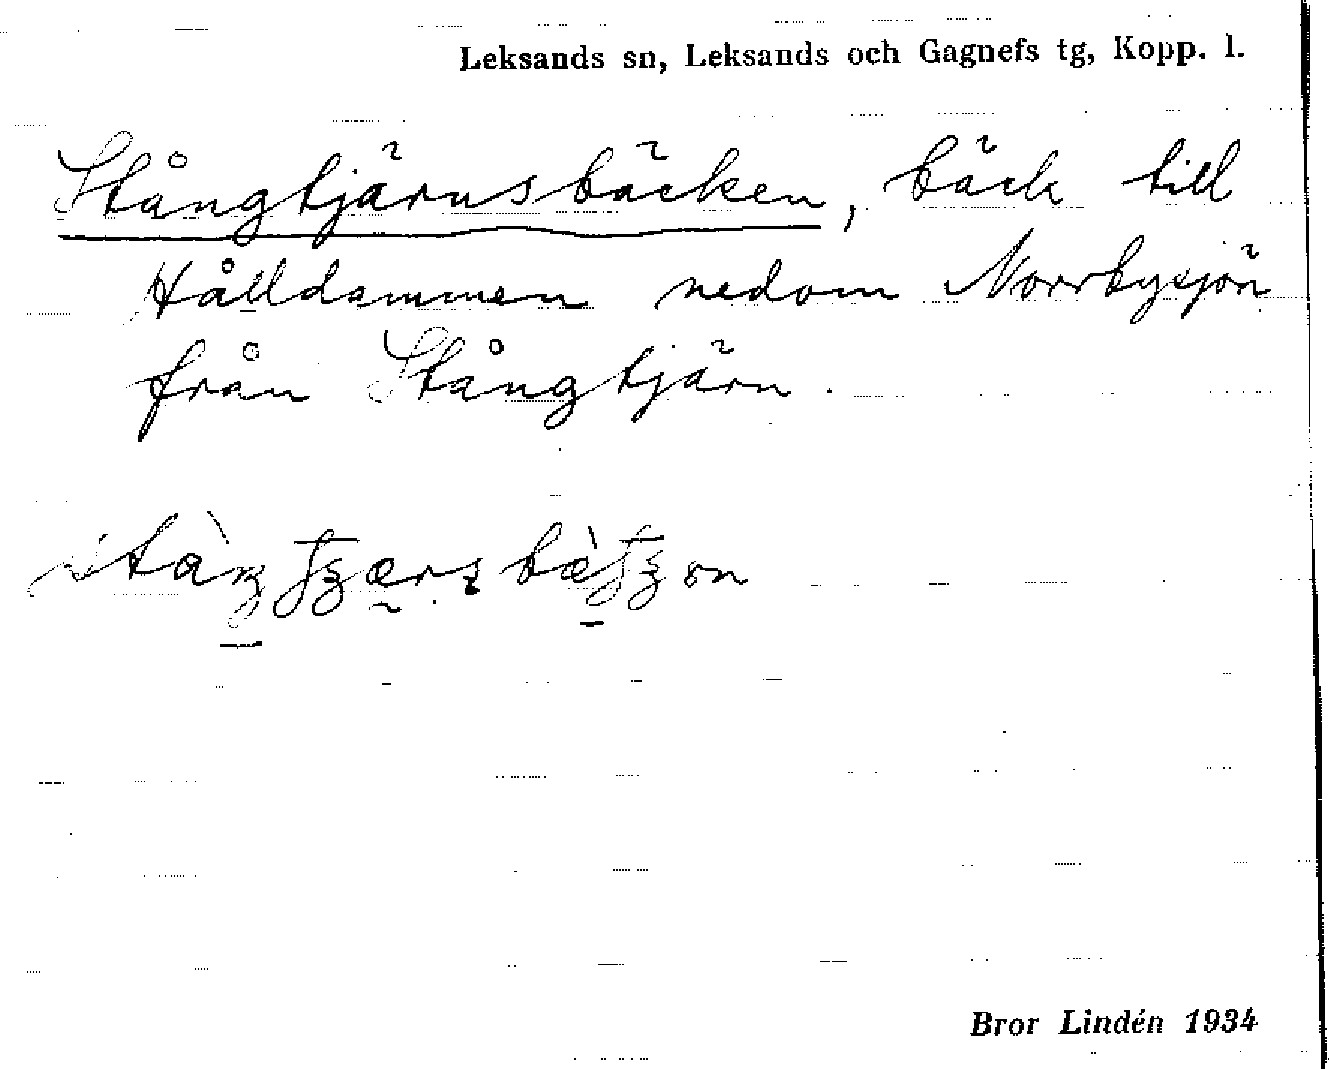 Leksands sn, Leksands och Gagnefs tg, Kopp. l.
Stångtjärnsbäcken, bäck till
Hålldammen nedom Norrbysjön
från Stångtjärn.
Bror Lindén 1934